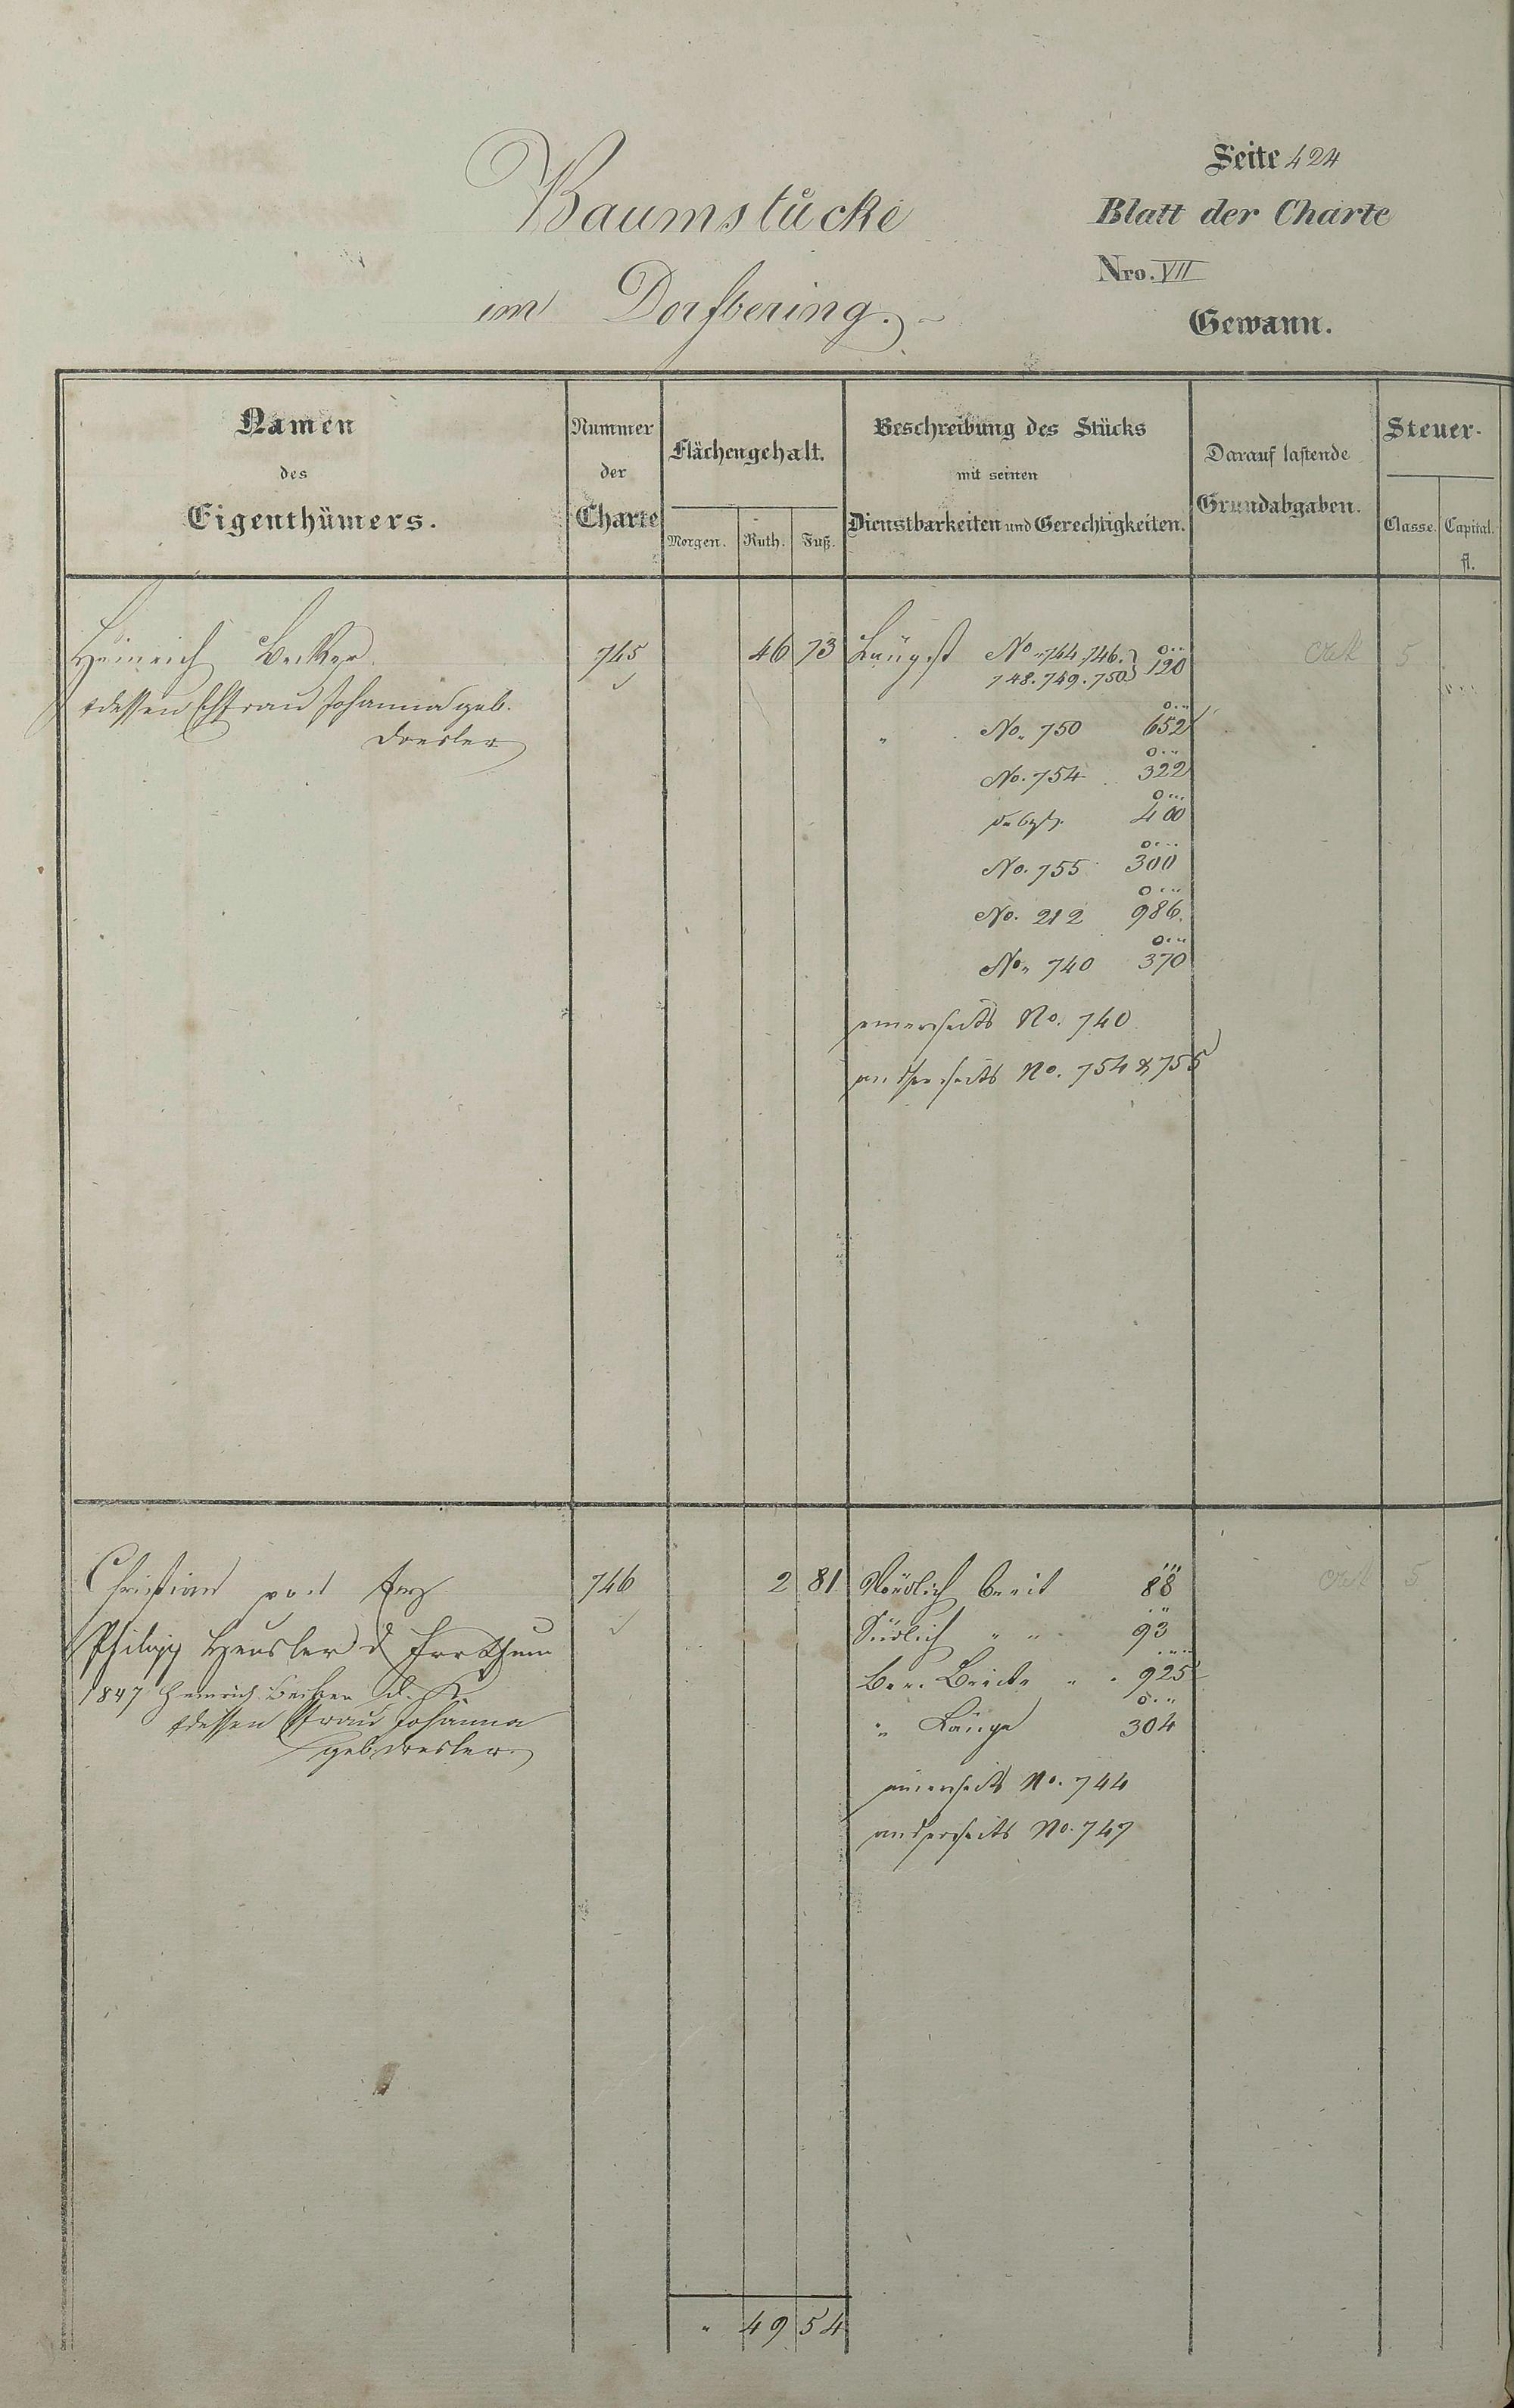 Seite 424
Baumstücke
Blatt der Charte
Nro. VII
im Dorfbering.
Gewann.
Namen
des
Eigenthümers.
Nummer
der
Charte
Flächengehalt.
Morgen. Ruth. Fuß.
Beschreibung des Stücks
mit seinen
Dienstbarkeiten und Gerechtigkeiten.
Darauf lastende
Grundabgaben.
Steuer-
Classe. Capital.
fl.
Heinrich Becker 745 46 73 Längst No. 744. 746. 120 5
748. 749. 750
dessen Ehfrau Johanna geb.
Dresler
" No. 750 652
No. 754 322
400
No. 755 300
No. 212 986.
No. 740 370
einerseits No. 740
anderseits No. 754 & 755
Christian 746 2 81 Nördlich breit 88 5
Philipp Heusler
Südlich " " 93
1847 Heinrich Becker
Ber. Breite " " 925
dessen Frau Johanna
" Länge 304
geb. Dresler
einerseits No. 744
anderseits No. 747
" 49 54